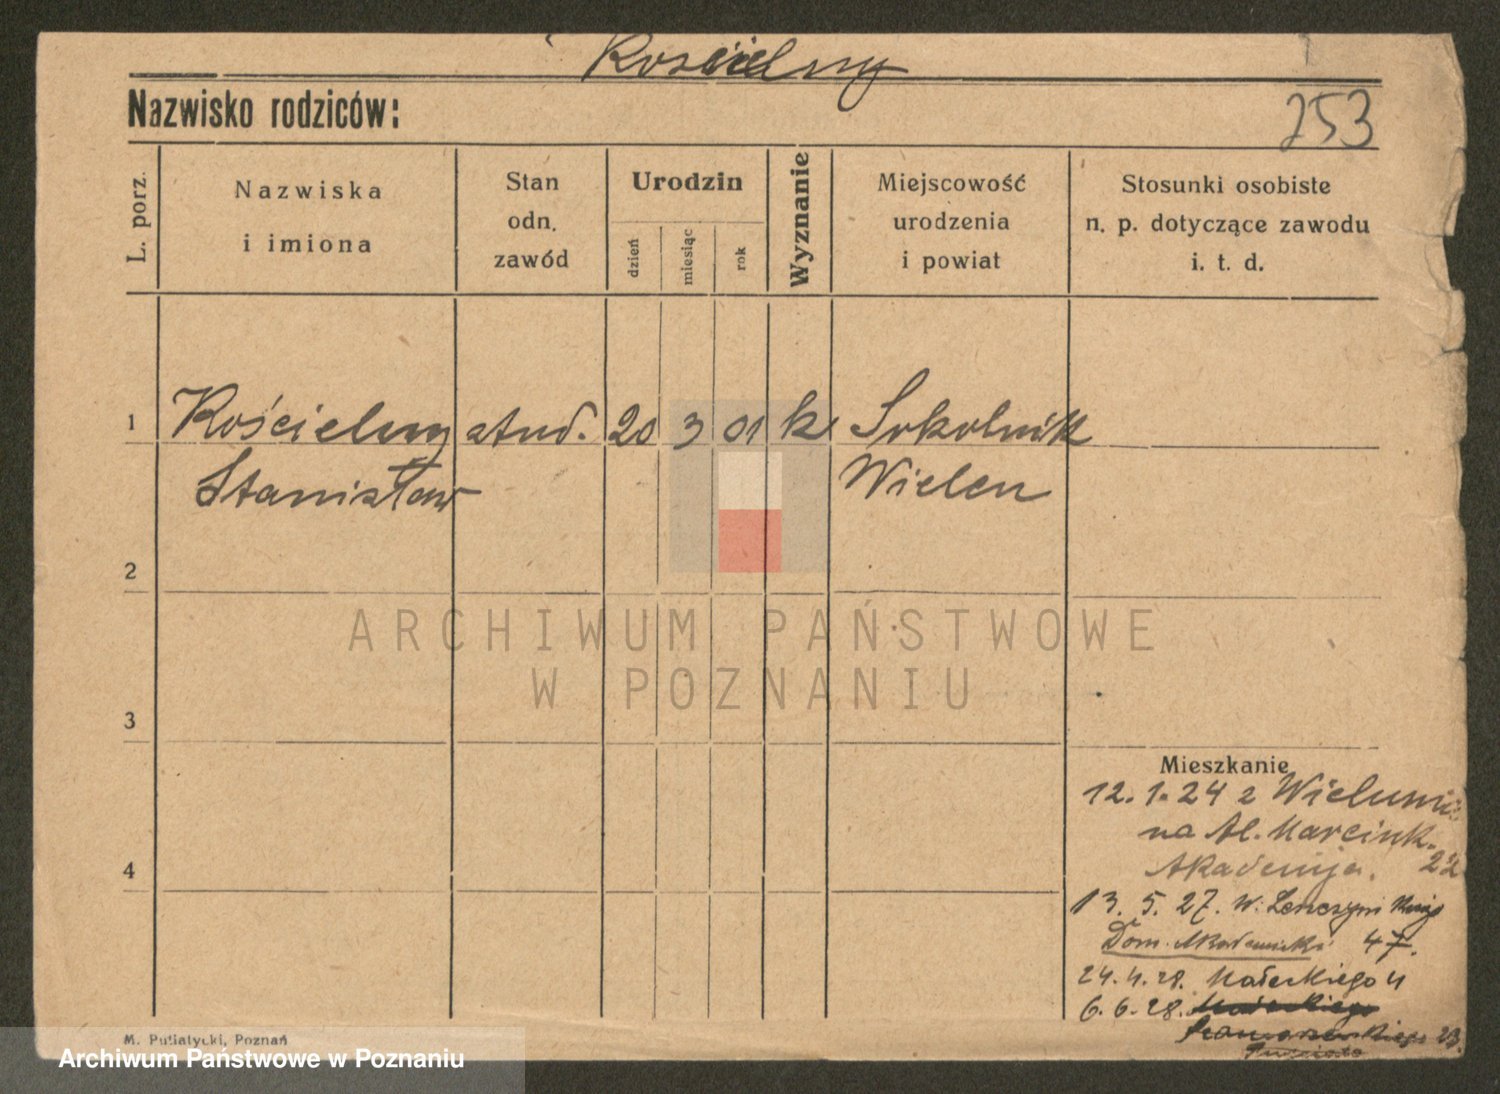 Kościelny
Nazwisko rodziców:
253
L. porz.
Nazwiska
i imiona
Stan
odn.
zawód
Urodzin
dzień
miesiąc
rok
Wyznanie
Miejscowość
urodzenia
i powiat
Stosunki osobiste
n. p. dotyczące zawodu
i. t. d.
1 Kościelny stud. 20 3 01 k Sokolnik
Stanisław Wielen
2
ARCHIWUM PAŃSTWOWE
W POZNANIU
3
Mieszkanie
12.1.24 z
na Al. Marcink.
Akademja. 22
4
13.5.27. W.
Dom Akademicki 47.
24.4.28. Małeckiego
6.6.28. Małeckiego
23.
M. Putiatycki, Poznań
Archiwum Państwowe w Poznaniu